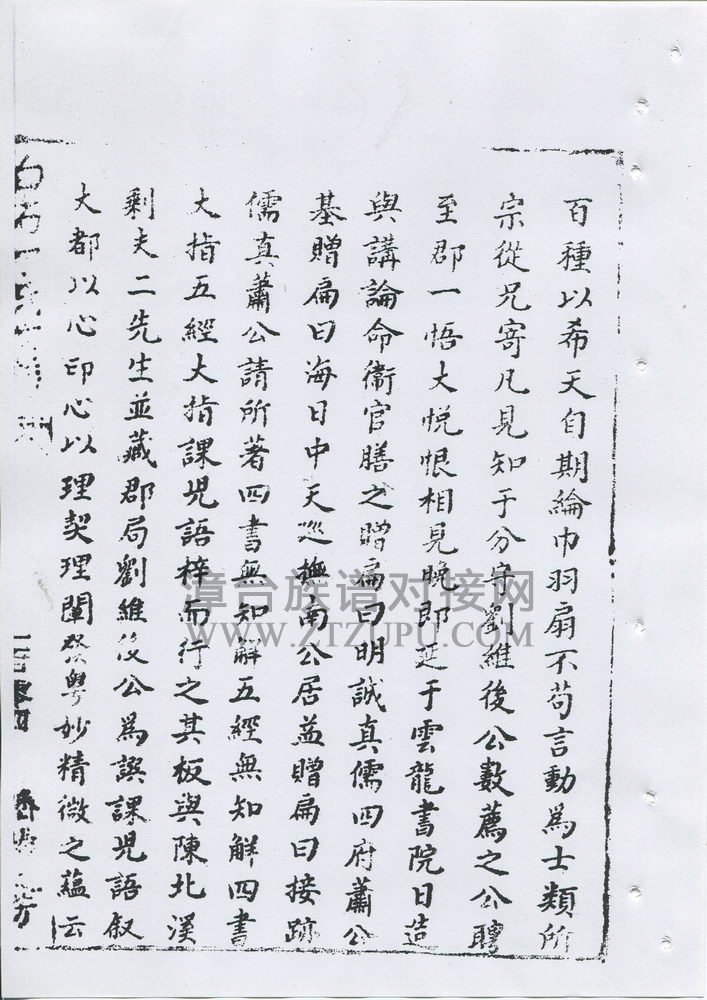 百種以希天自期綸巾羽扇不苟言動為士類所
宗從兄寄凡見知于分守劉維後公數薦之公聘
至郡一悟大悅恨相見晚即延于雲龍書院日造
與講論命衛官膳之贈扁曰明誠真儒四府蕭公
基贈扁曰海日中天巡撫南公居益贈扁曰接跡
儒真蕭公請所著四書無知解五經無知解四書
大指五經大指課兒語梓而行之其板與陳北溪
剩夫二先生並藏郡局劉維後公為誤課兒語叙
大都以心印心以理契理闡發粤妙精微之蘊云
漳台族谱对接网
WWW.ZTZUPU.COM